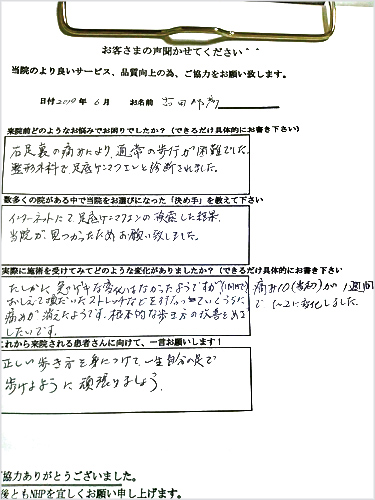 お客さまの声聞かせてください^^
当院のより良いサービス、品質向上の為、ご協力をお願い致します。
日付 2010年 6月 お名前 吉田
来院前どのようなお悩みでお困りでしたか？（できるだけ具体的にお書き下さい）
右足裏の痛みにより、通常の歩行が困難でした。
整形外科で足底ケンマクエンと診断されました。
数多くの院がある中で当院をお選びになった「決め手」を教えて下さい
インターネットにて、足底ケンマクエンの検索した結果、
当院が見つかったためお願い致しました。
実際に施術を受けてみてどのような変化がありましたか？（できるだけ具体的にお書き下さい
たしかに、急げきな変化はなかったようですが
おしえて頂だいたストレッチなどを行なっていくうちに
痛みが消えたようです。根本的な歩き方の改善をめざ
したいです。
痛み10(当初)が1週間
で1〜2に変化しました。
これから来院される患者さんに向けて、一言お願いします！
正しい歩き方を身につけて、一生自分の足で
歩けるように頑張りましょう。
協力ありがとうございました。
後ともNHPを宜しくお願い申し上げます。